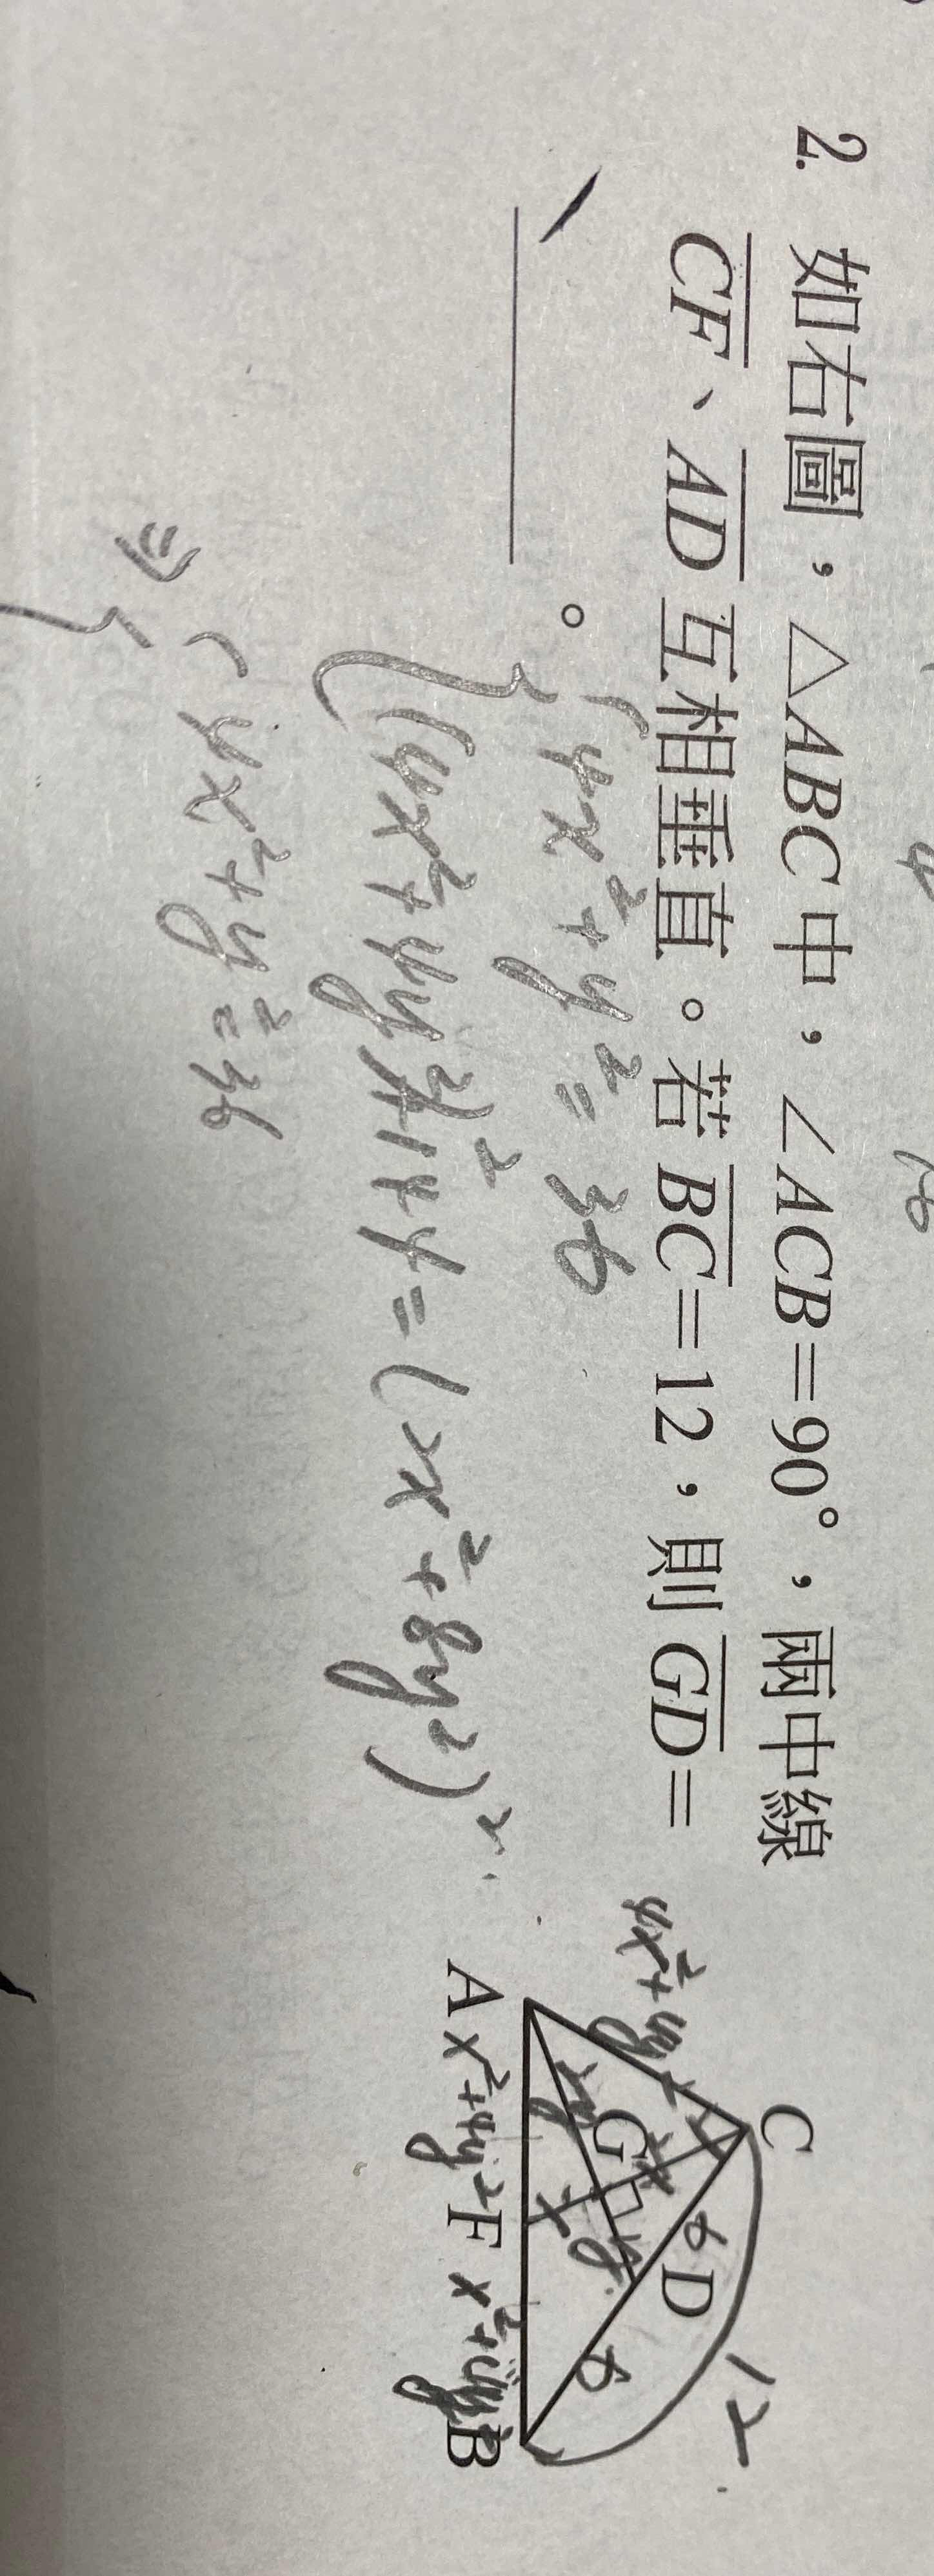 2. 如右圖，△ABC中，∠ACB=90°，兩中線
CF、AD互相垂直。若BC=12，則GD=
。
4x²+y²=36
(4x²+4y²)²+144=(2x²+8y²)²
⇒ 4x²+y²=36
C
A
F
B
D
G
12
6
6
4x²+4y²
x²+4y²
x²+4y²
2y
2x
x
y